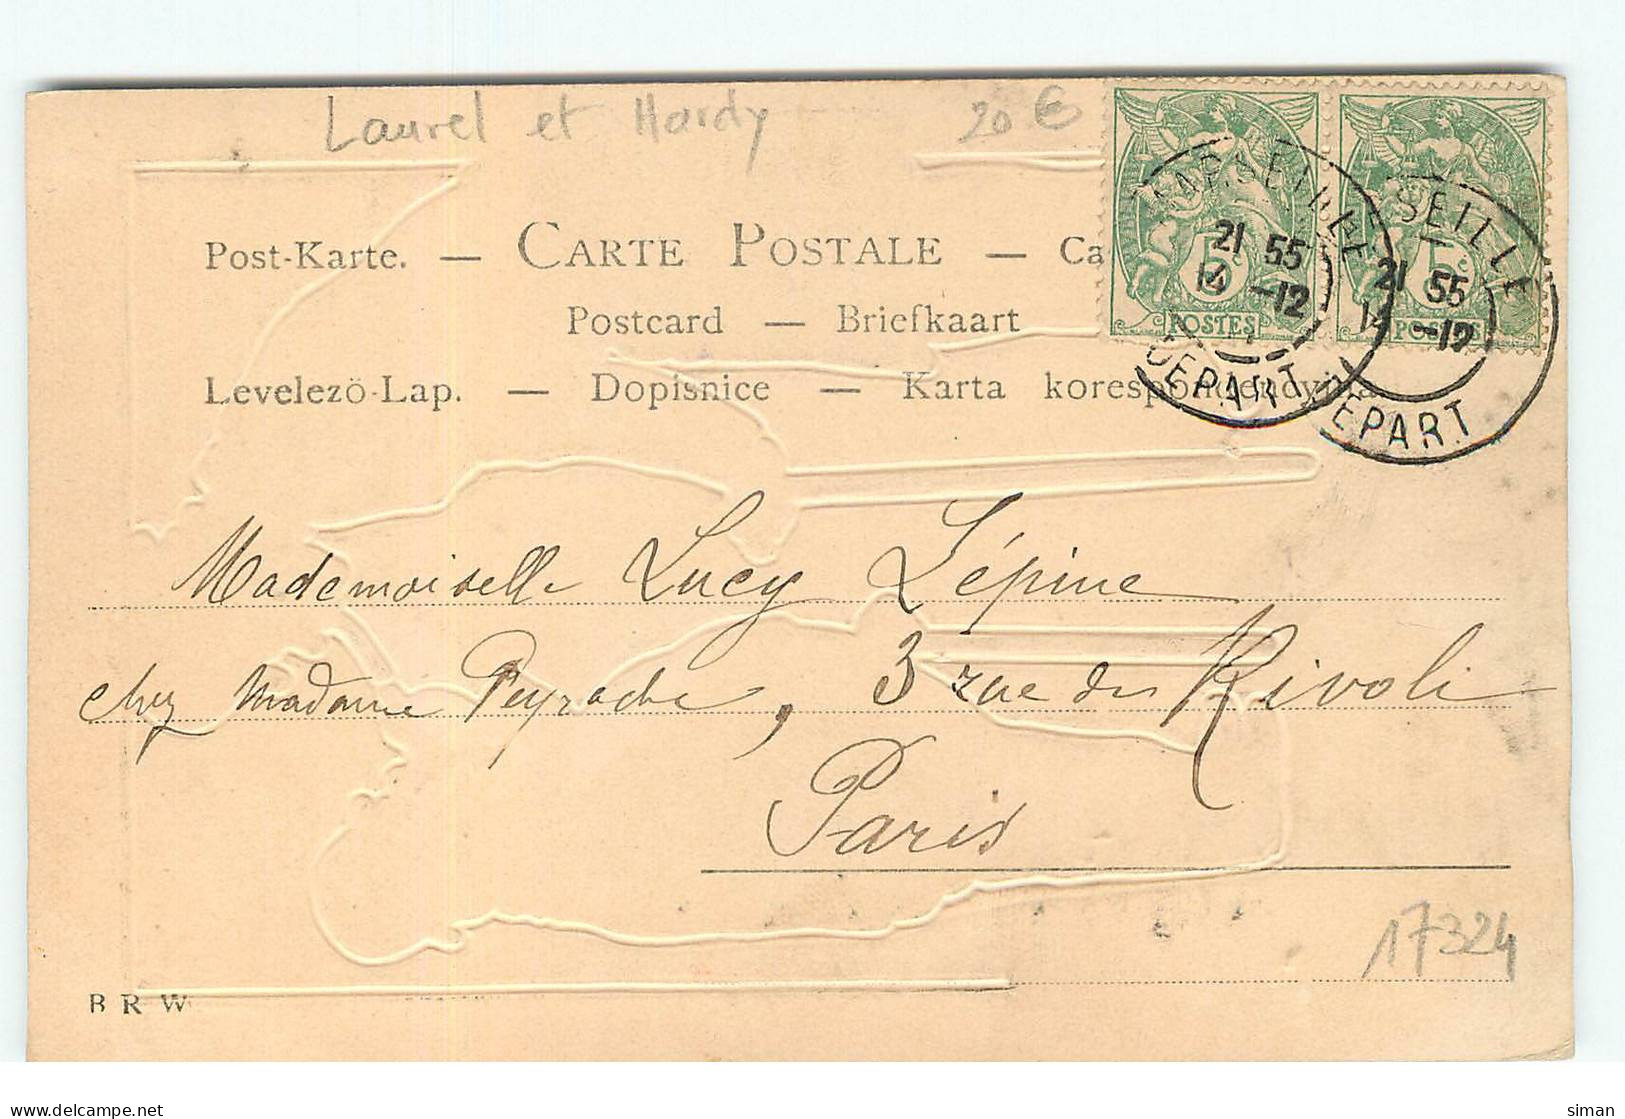 Laurel et Hardy 20 €
Post-Karte. — CARTE POSTALE — Ca
Postcard — Briefkaart
Levelezö-Lap. — Dopisnice — Karta
MARSEILLE
21 55
14 -12
DEPART
5c
POSTES
SEILLE
21 55
14 -12
EPART
5c
POSTES
Mademoiselle Lucy Lépine
chez Madame Peyrache, 3 rue de Rivoli
Paris
17324
B R W
delcampe.net
siman